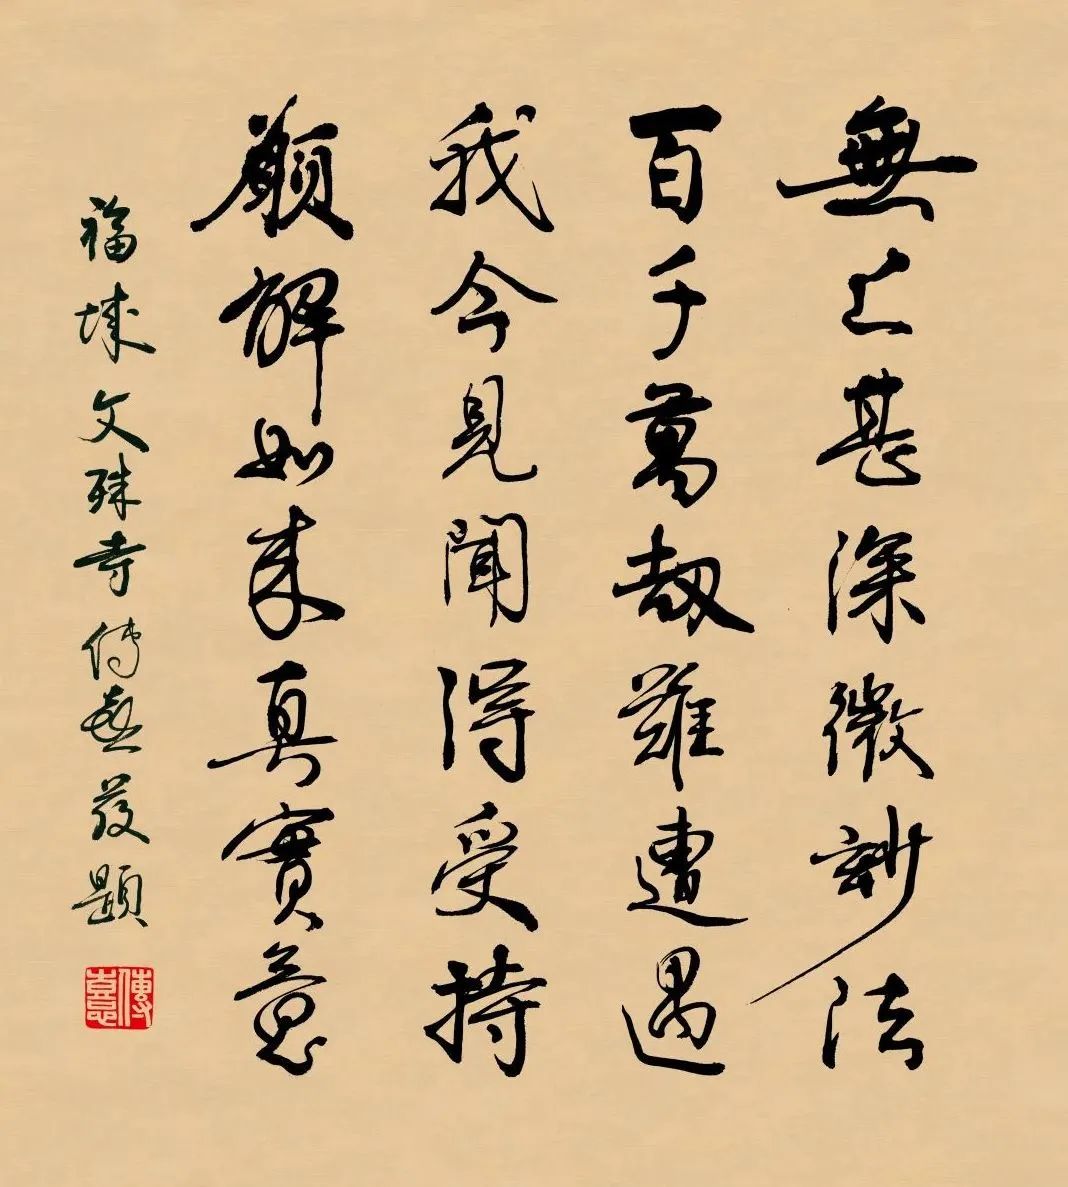 無上甚深微妙法
百千萬劫難遭遇
我今見聞得受持
願解如來真實意
福城文殊寺傳憙敬題
傳憙